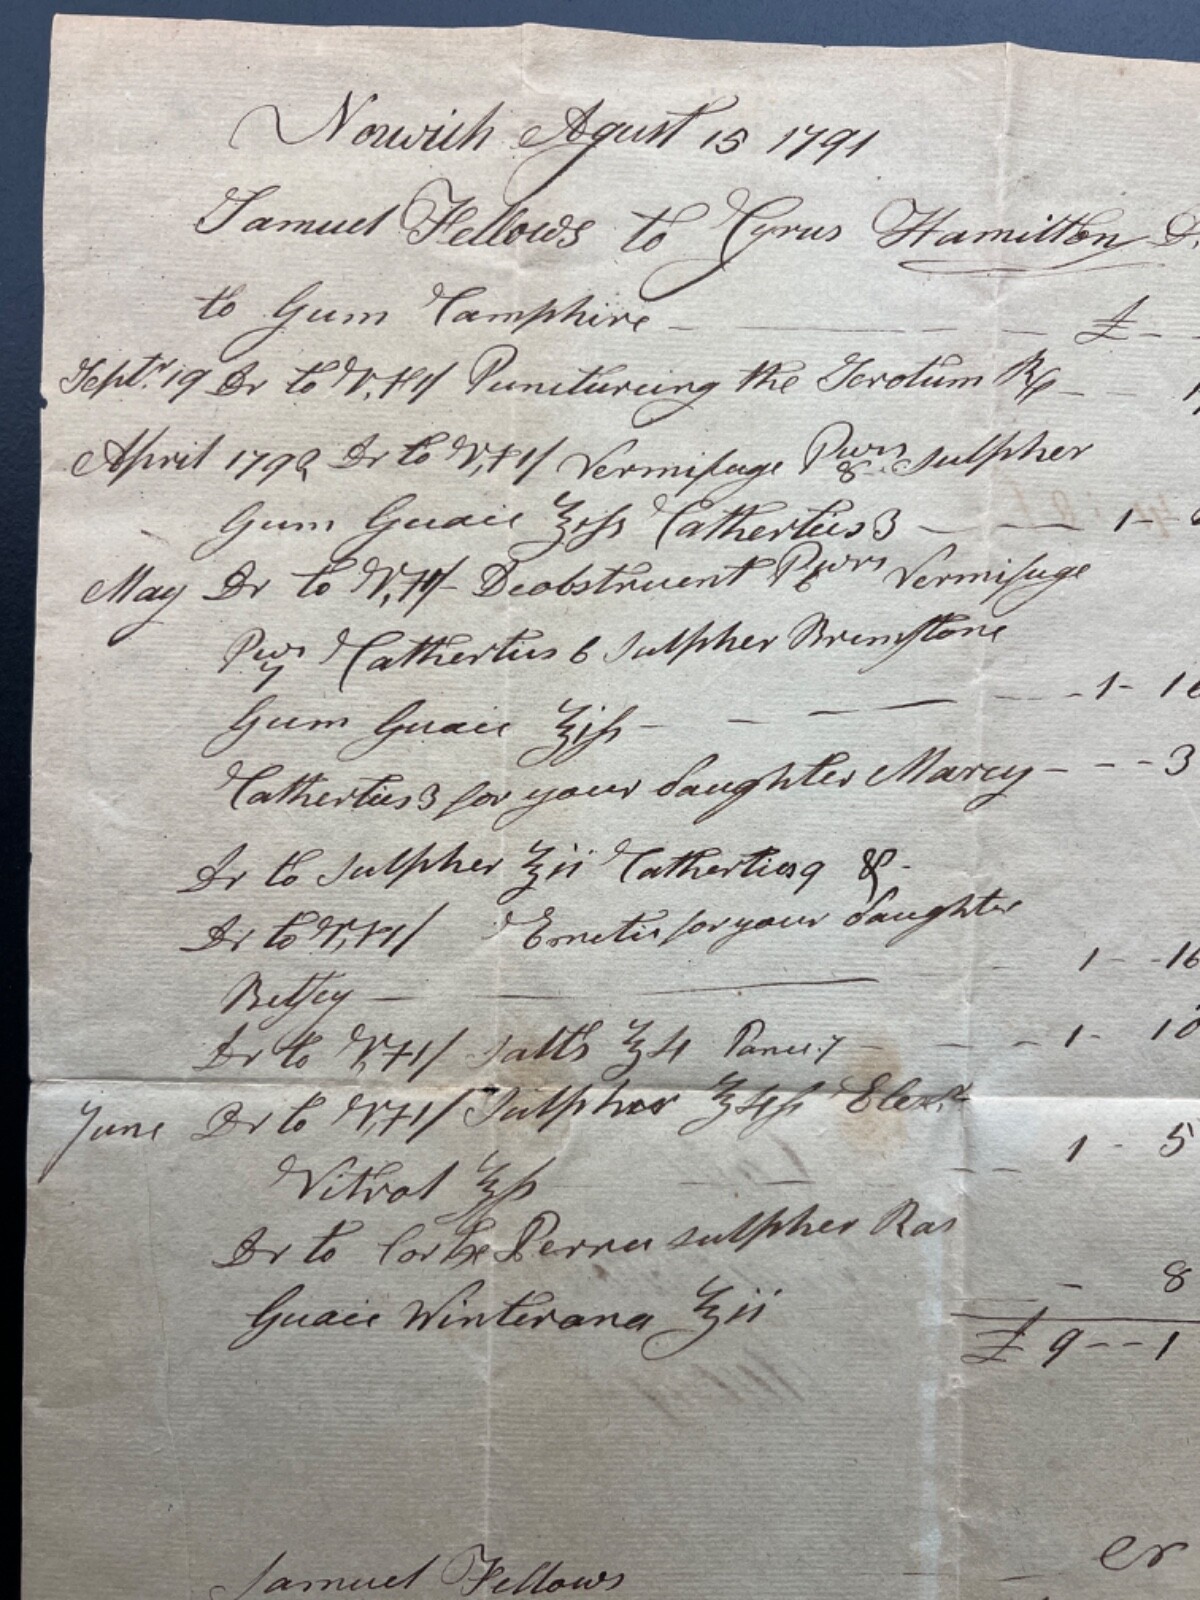 Norwich Agust 15 1791
Samuel Fellows to Cyrus Hamilton D
to Gum Camphire - - - - £ - -
Septr 19 Dr to V,&M/ Puncturcing the Scrotum
April 1792 Dr to V,&M/ Vermifuge Pwrs 8 sulpher
Gum Guaic ℥iss Cathertics 3 - - 1 -
May Dr to V,&M/ Deobstruent Pwrs 6 Vermifuge
Pwrs 7 Cathertics 6 Sulpher Brimstone
Gum Guaic ℥iss - - - - - 1 - 16
Cathertics 3 for your daughter Marcy - - - 3
Dr to Sulpher ℥ii Cathertics 9 & -
Dr to V,&M/ Emetic for your daughter
Betsey - - - - 1 - - 16
Dr to V,&M/ Salts ℥4 - - - 1 - 10
June Dr to V,&M/ Sulpher ℥4ss
Vitrol ℥ss - - 1 - 5
Dr to Perru sulpher Ras
Guaic Winterana ℥ii - 8
£ 9 - - 1
er
Samuel Fellows